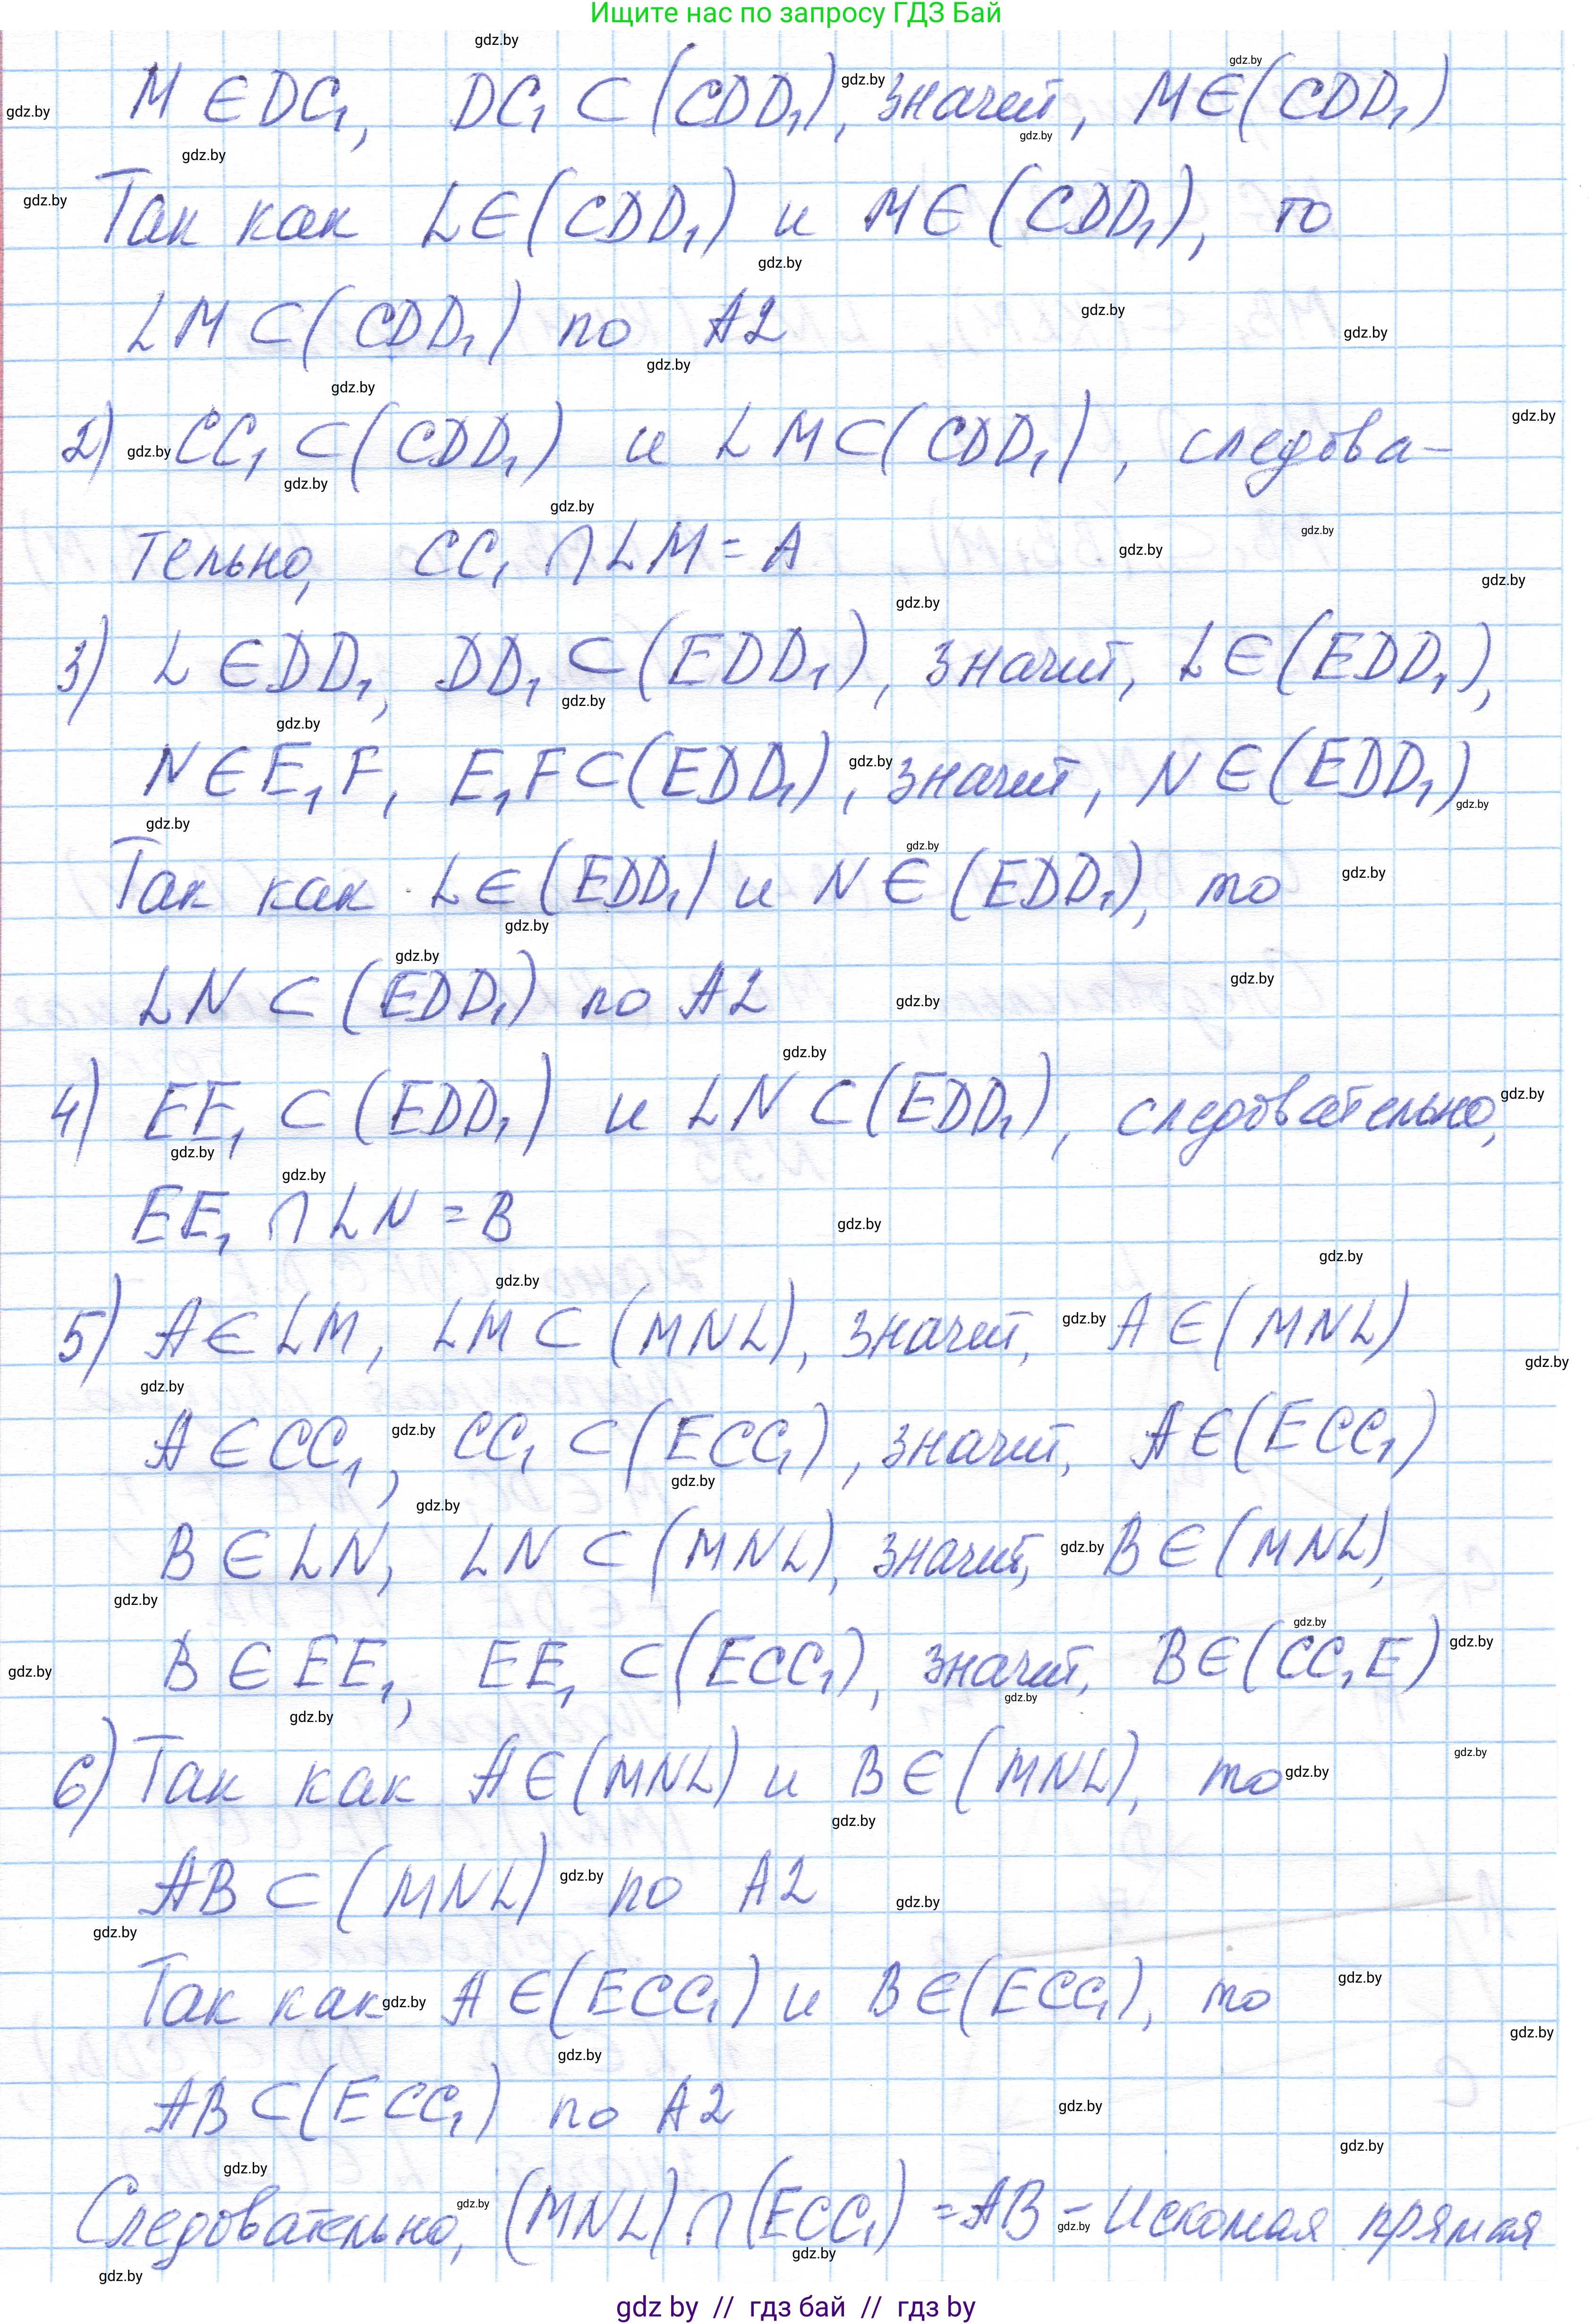 Ищите нас по запросу ГДЗ Бай
M ∈ DC₁, DC₁ ⊂ (CDD₁), значит, M ∈ (CDD₁)
Так как L ∈ (CDD₁) и M ∈ (CDD₁), то
LM ⊂ (CDD₁) по A2
2) CC₁ ⊂ (CDD₁) и LM ⊂ (CDD₁), следова-
тельно, CC₁ ∩ LM = A
3) L ∈ DD₁, DD₁ ⊂ (EDD₁), значит, L ∈ (EDD₁),
N ∈ E₁F, E₁F ⊂ (EDD₁), значит, N ∈ (EDD₁)
Так как L ∈ (EDD₁) и N ∈ (EDD₁), то
LN ⊂ (EDD₁) по A2
4) EE₁ ⊂ (EDD₁) и LN ⊂ (EDD₁), следовательно,
EE₁ ∩ LN = B
5) A ∈ LM, LM ⊂ (MNL), значит, A ∈ (MNL)
A ∈ CC₁, CC₁ ⊂ (ECC₁), значит, A ∈ (ECC₁)
B ∈ LN, LN ⊂ (MNL), значит, B ∈ (MNL),
B ∈ EE₁, EE₁ ⊂ (ECC₁), значит, B ∈ (CC₁E)
6) Так как A ∈ (MNL) и B ∈ (MNL), то
AB ⊂ (MNL) по A2
Так как A ∈ (ECC₁) и B ∈ (ECC₁), то
AB ⊂ (ECC₁) по A2
Следовательно, (MNL) ∩ (ECC₁) = AB – Искомая прямая
gdz by // гдз бай // гдз by